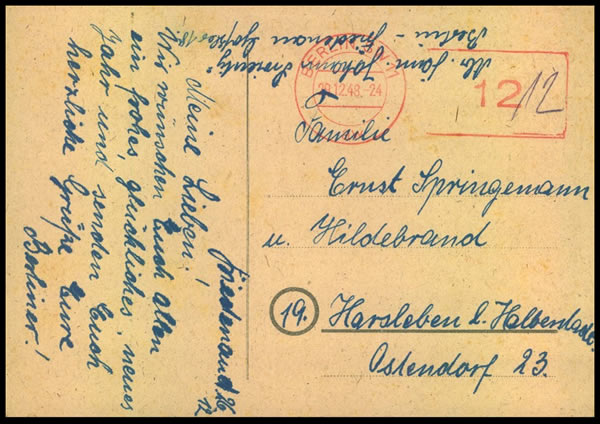 Friedenau d. 26
12
Meine Lieben!
Wir wünschen Euch allen
ein frohes, glückliches, neues
Jahr und senden Euch
herzliche Grüße Eure
Berliner!
Berlin - Friedenau
Johann
BERLIN
12.48.-24
12
12
Familie
Ernst Springemann
u. Hildebrand
19. Harsleben b. Halberstadt.
Ostendorf 23.